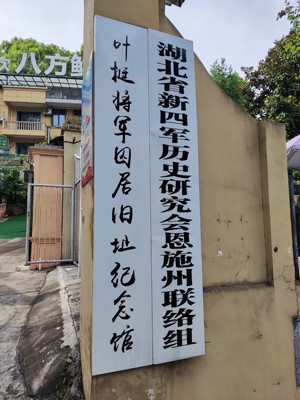 湖北省新四军历史研究会恩施州联络组
叶挺将军囚居旧址纪念馆
八万